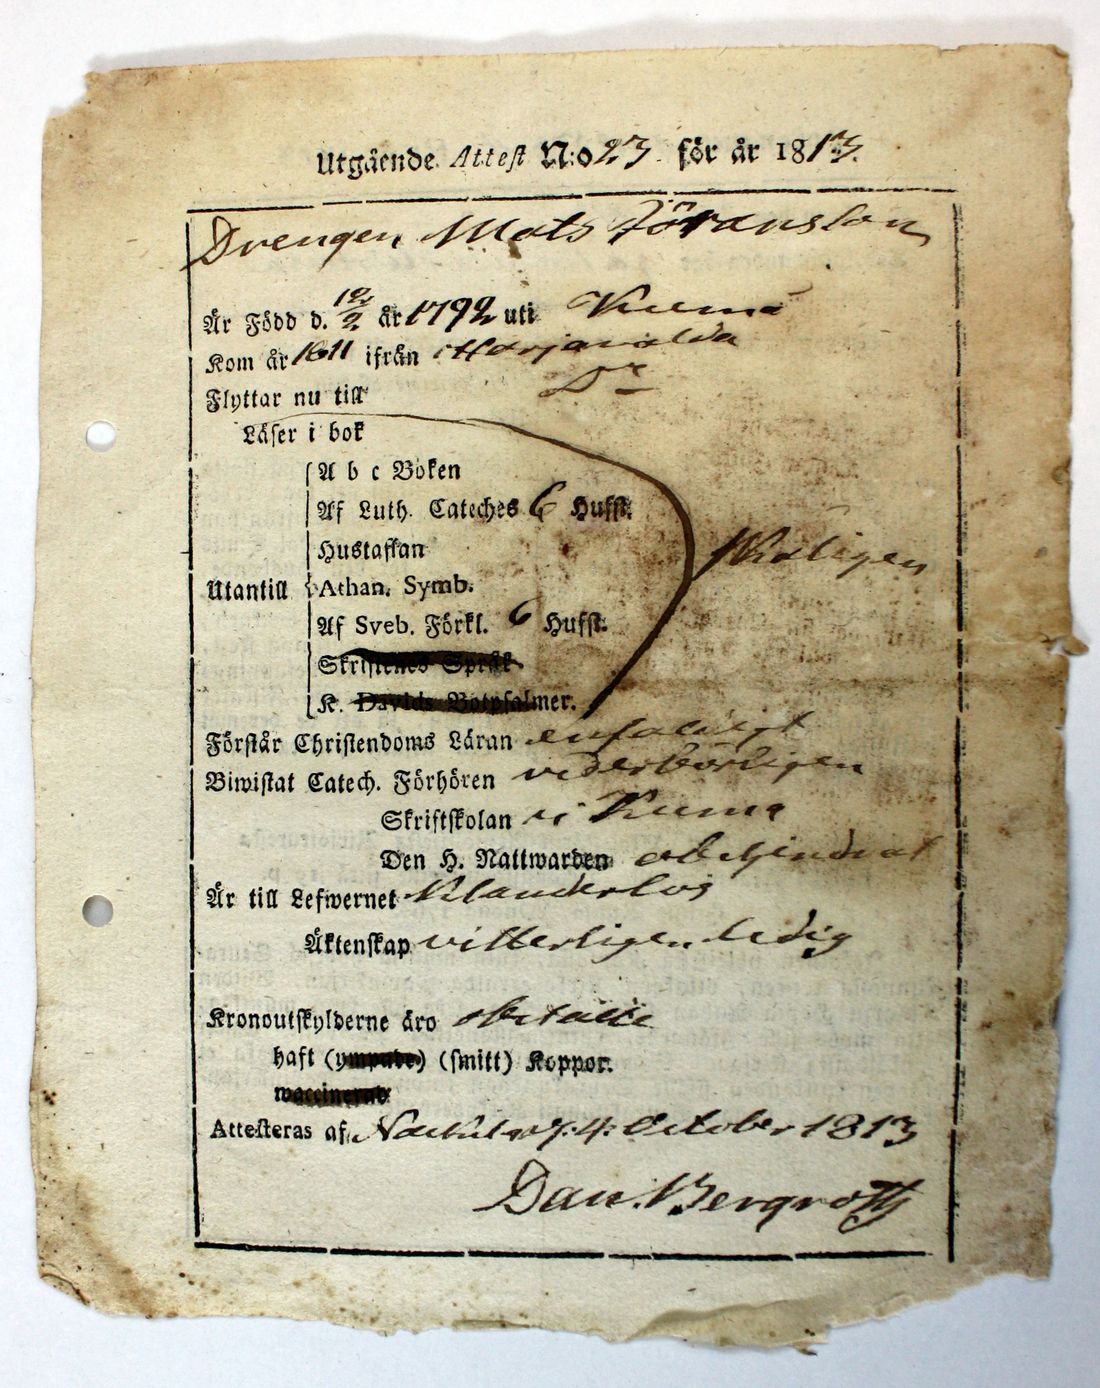 Utgående Attest N:o 23 för år 1813.
Drengen Mats Jöransson
Är Född d. 12/2 år 1792 uti Kumo
Kom år 1811 ifrån Harjavalda
Flyttar nu till Do
Läser i bok
A b c Boken
Af Luth. Cateches 6 Hufst.
Hustaflan
Utantill Athan. Symb.
Af Sveb. Förkl. 6 Hufst.
Skriftenes Språk
K. Davids Botpsalmer.
Förstår Christendoms Läran enfaldigt
Biwistat Catech. Förhören vederbörligen
Skriftskolan i Kumo
Den H. Nattwarden obehindrat
Är till Lefwernet Klanderlös
Äktenskap vitterligen ledig
Kronoutskylderne äro obetalte
haft (ympade) (smitt) Koppor.
waccinerad
Attesteras af 4 October 1813
Dan. Bergroth